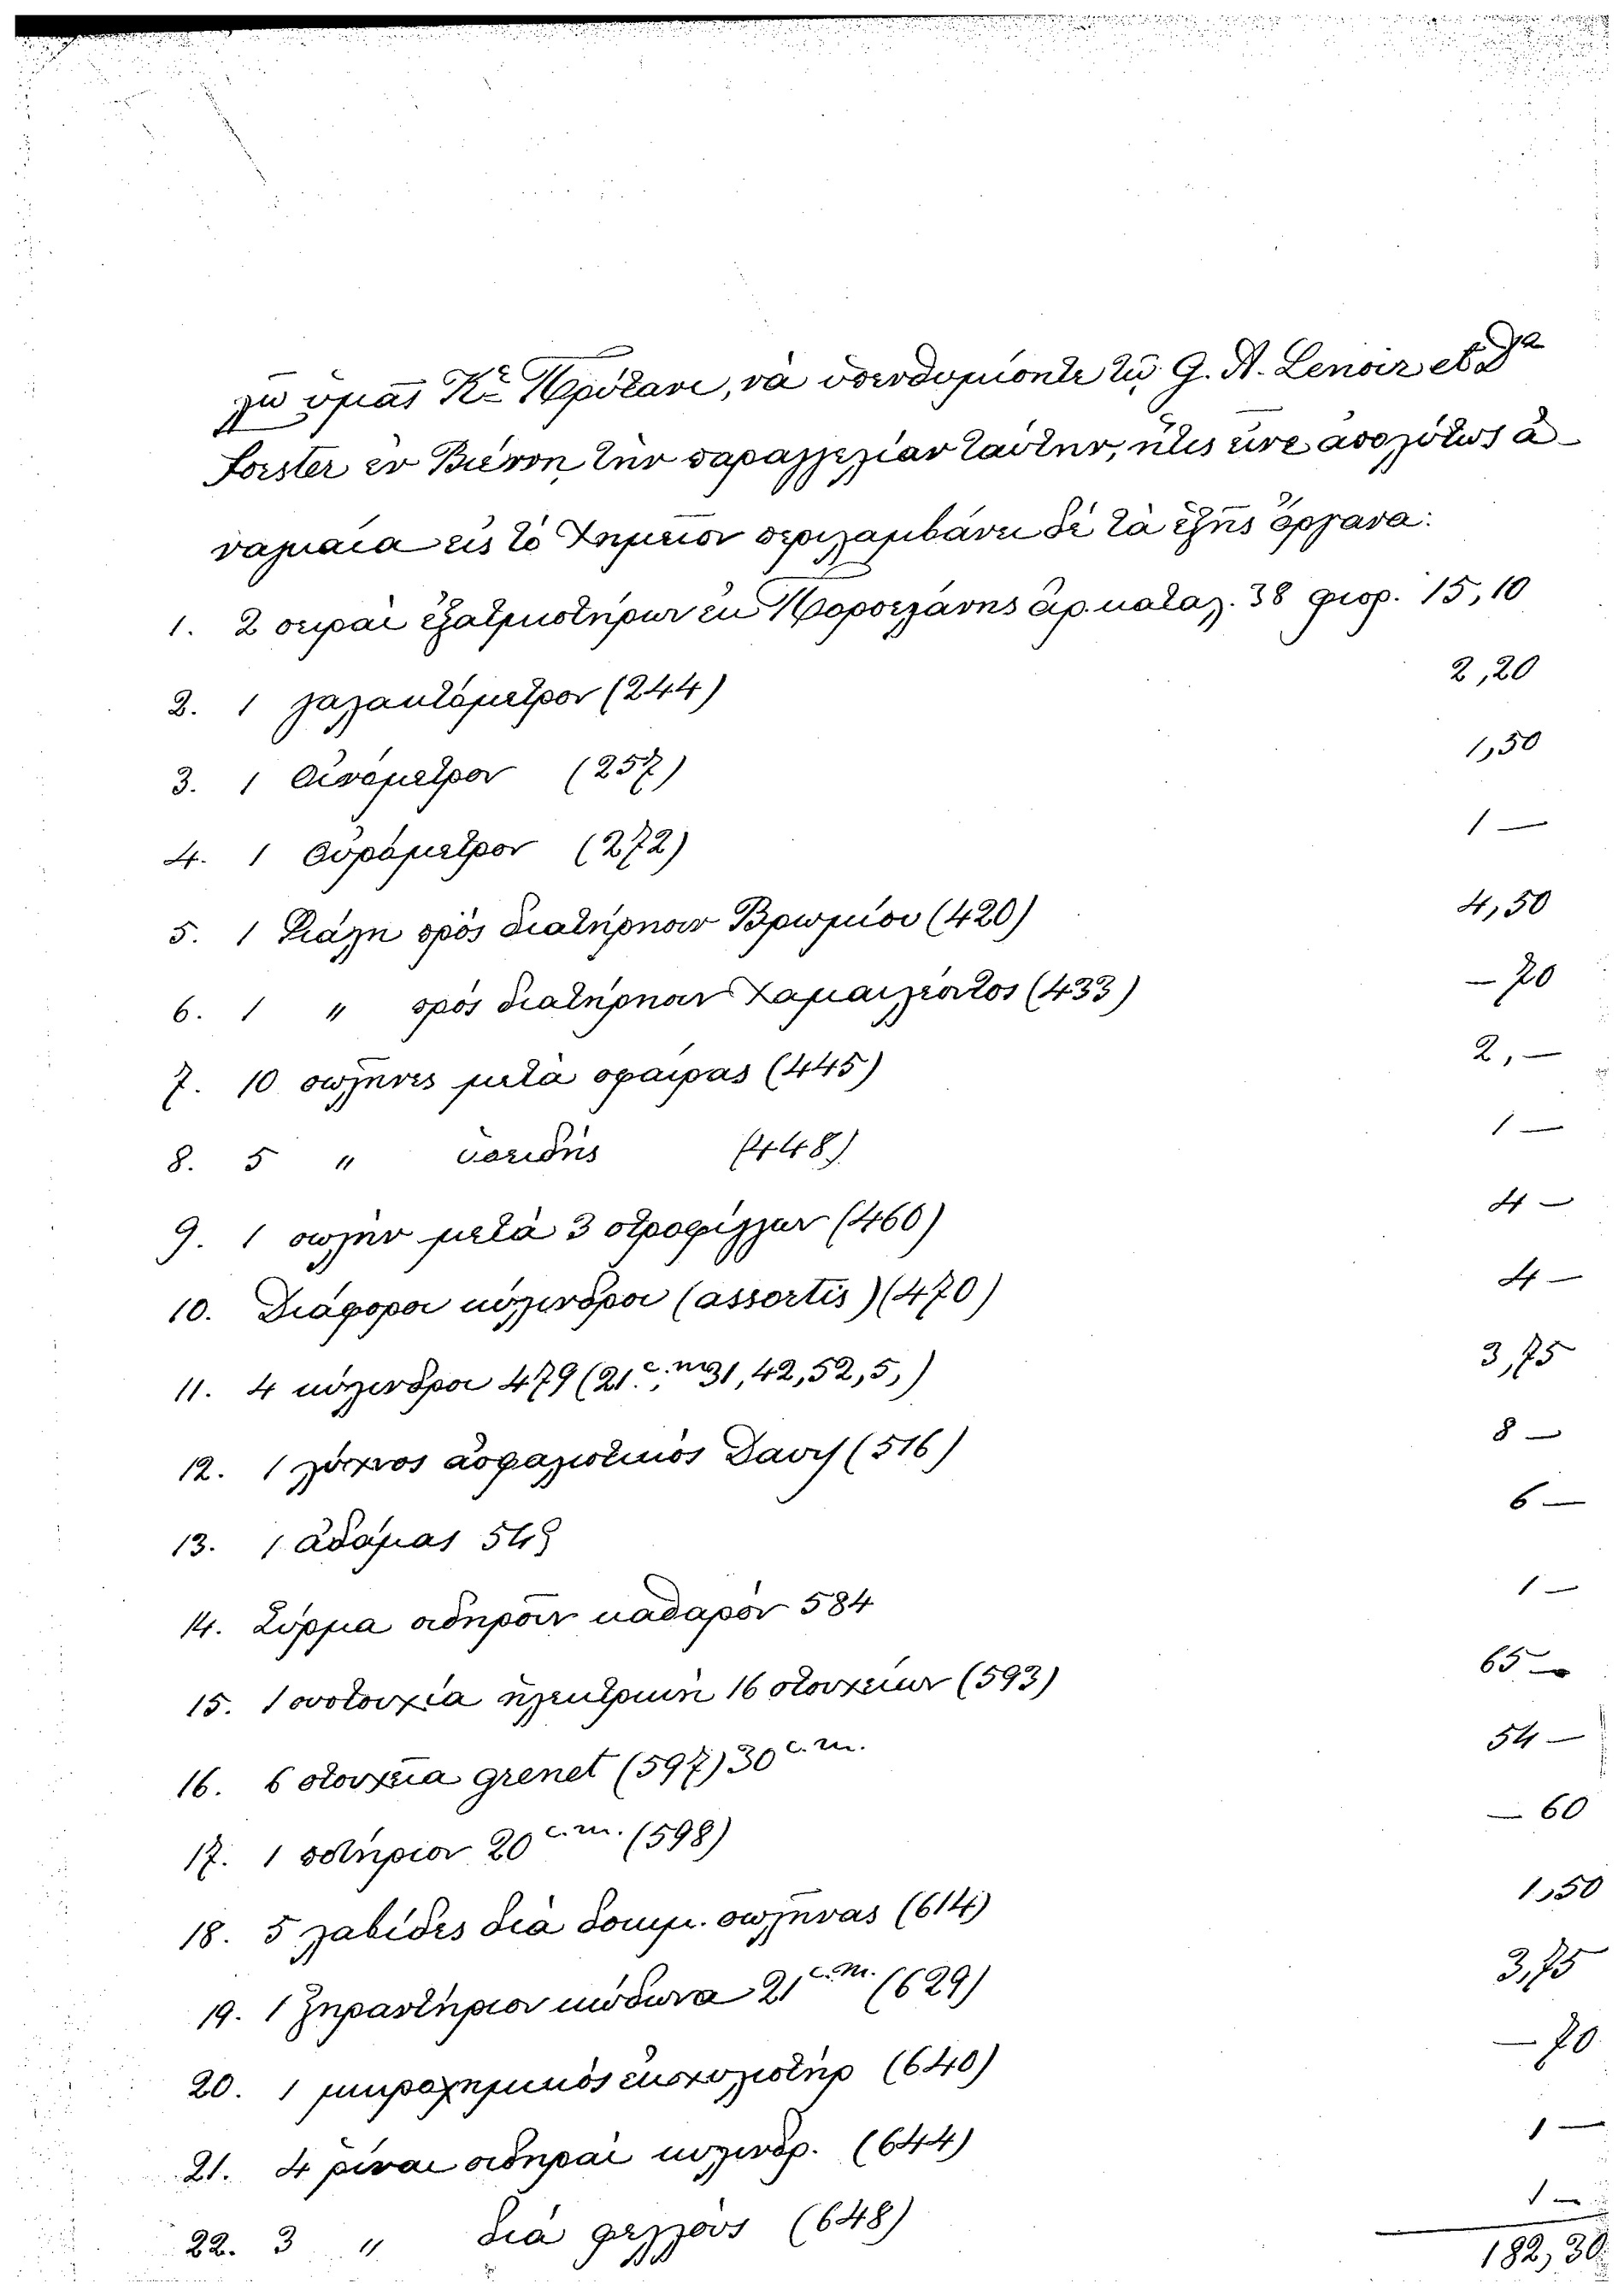 λῶ ὑμᾶς Κε Πρύτανι, νὰ ὑπενθυμίσητε τῷ G. A. Lenoir et Dr
Forster ἐν Βιέννῃ τὴν παραγγελίαν ταύτην, ἥτις εἶνε ἀπολύτως ἀ-
ναγκαία εἰς τὸ Χημεῖον περιλαμβάνει δὲ τὰ ἑξῆς ὄργανα:
1. 2 σειραὶ ἐξατμιστήρων ἐκ Πορσελάνης ἀρ. καταλ. 38 φιορ. 15,10
2. 1 γαλακτόμετρον (244) 2,20
3. 1 Οἰνόμετρον (257) 1,50
4. 1 Οὐρόμετρον (272) 1 —
5. 1 Φιάλη πρὸς διατήρησιν Βρωμίου (420) 4,50
6. 1 " πρὸς διατήρησιν Χαμαιλέοντος (433) — 70
7. 10 σωλῆνες μετὰ σφαίρας (445) 2, —
8. 5 " ὑοειδής (448) 1 —
9. 1 σωλὴν μετὰ 3 στροφίγγων (460) 4 —
10. Διάφοροι κύλινδροι (assortis) (470) 4 —
11. 4 κύλινδροι 479 (21 c.m 31, 42, 52, 5,) 3,75
12. 1 λύχνος ἀσφαλιστικὸς Davy (516) 8 —
13. 1 ἀδάμας 549 6 —
14. Σύρμα σιδηροῦν καθαρὸν 584 1 —
15. 1 συστοιχία ἠλεκτρικὴ 16 στοιχείων (593) 65 —
16. 6 στοιχεῖα grenet (597) 30 c.m. 54 —
17. 1 ποτήριον 20 c.m. (598) — 60
18. 5 λαβίδες διὰ δοκιμ. σωλῆνας (614) 1,50
19. 1 ξηραντήριον κώδωνα 21 c.m. (629) 3,75
20. 1 μικροχημικὸς ἐκχυλιστὴρ (640) — 70
21. 4 ῥίναι σιδηραῖ κυλινδρ. (644) 1 —
22. 3 " διὰ φελλοὺς (648) 1 —
182,30